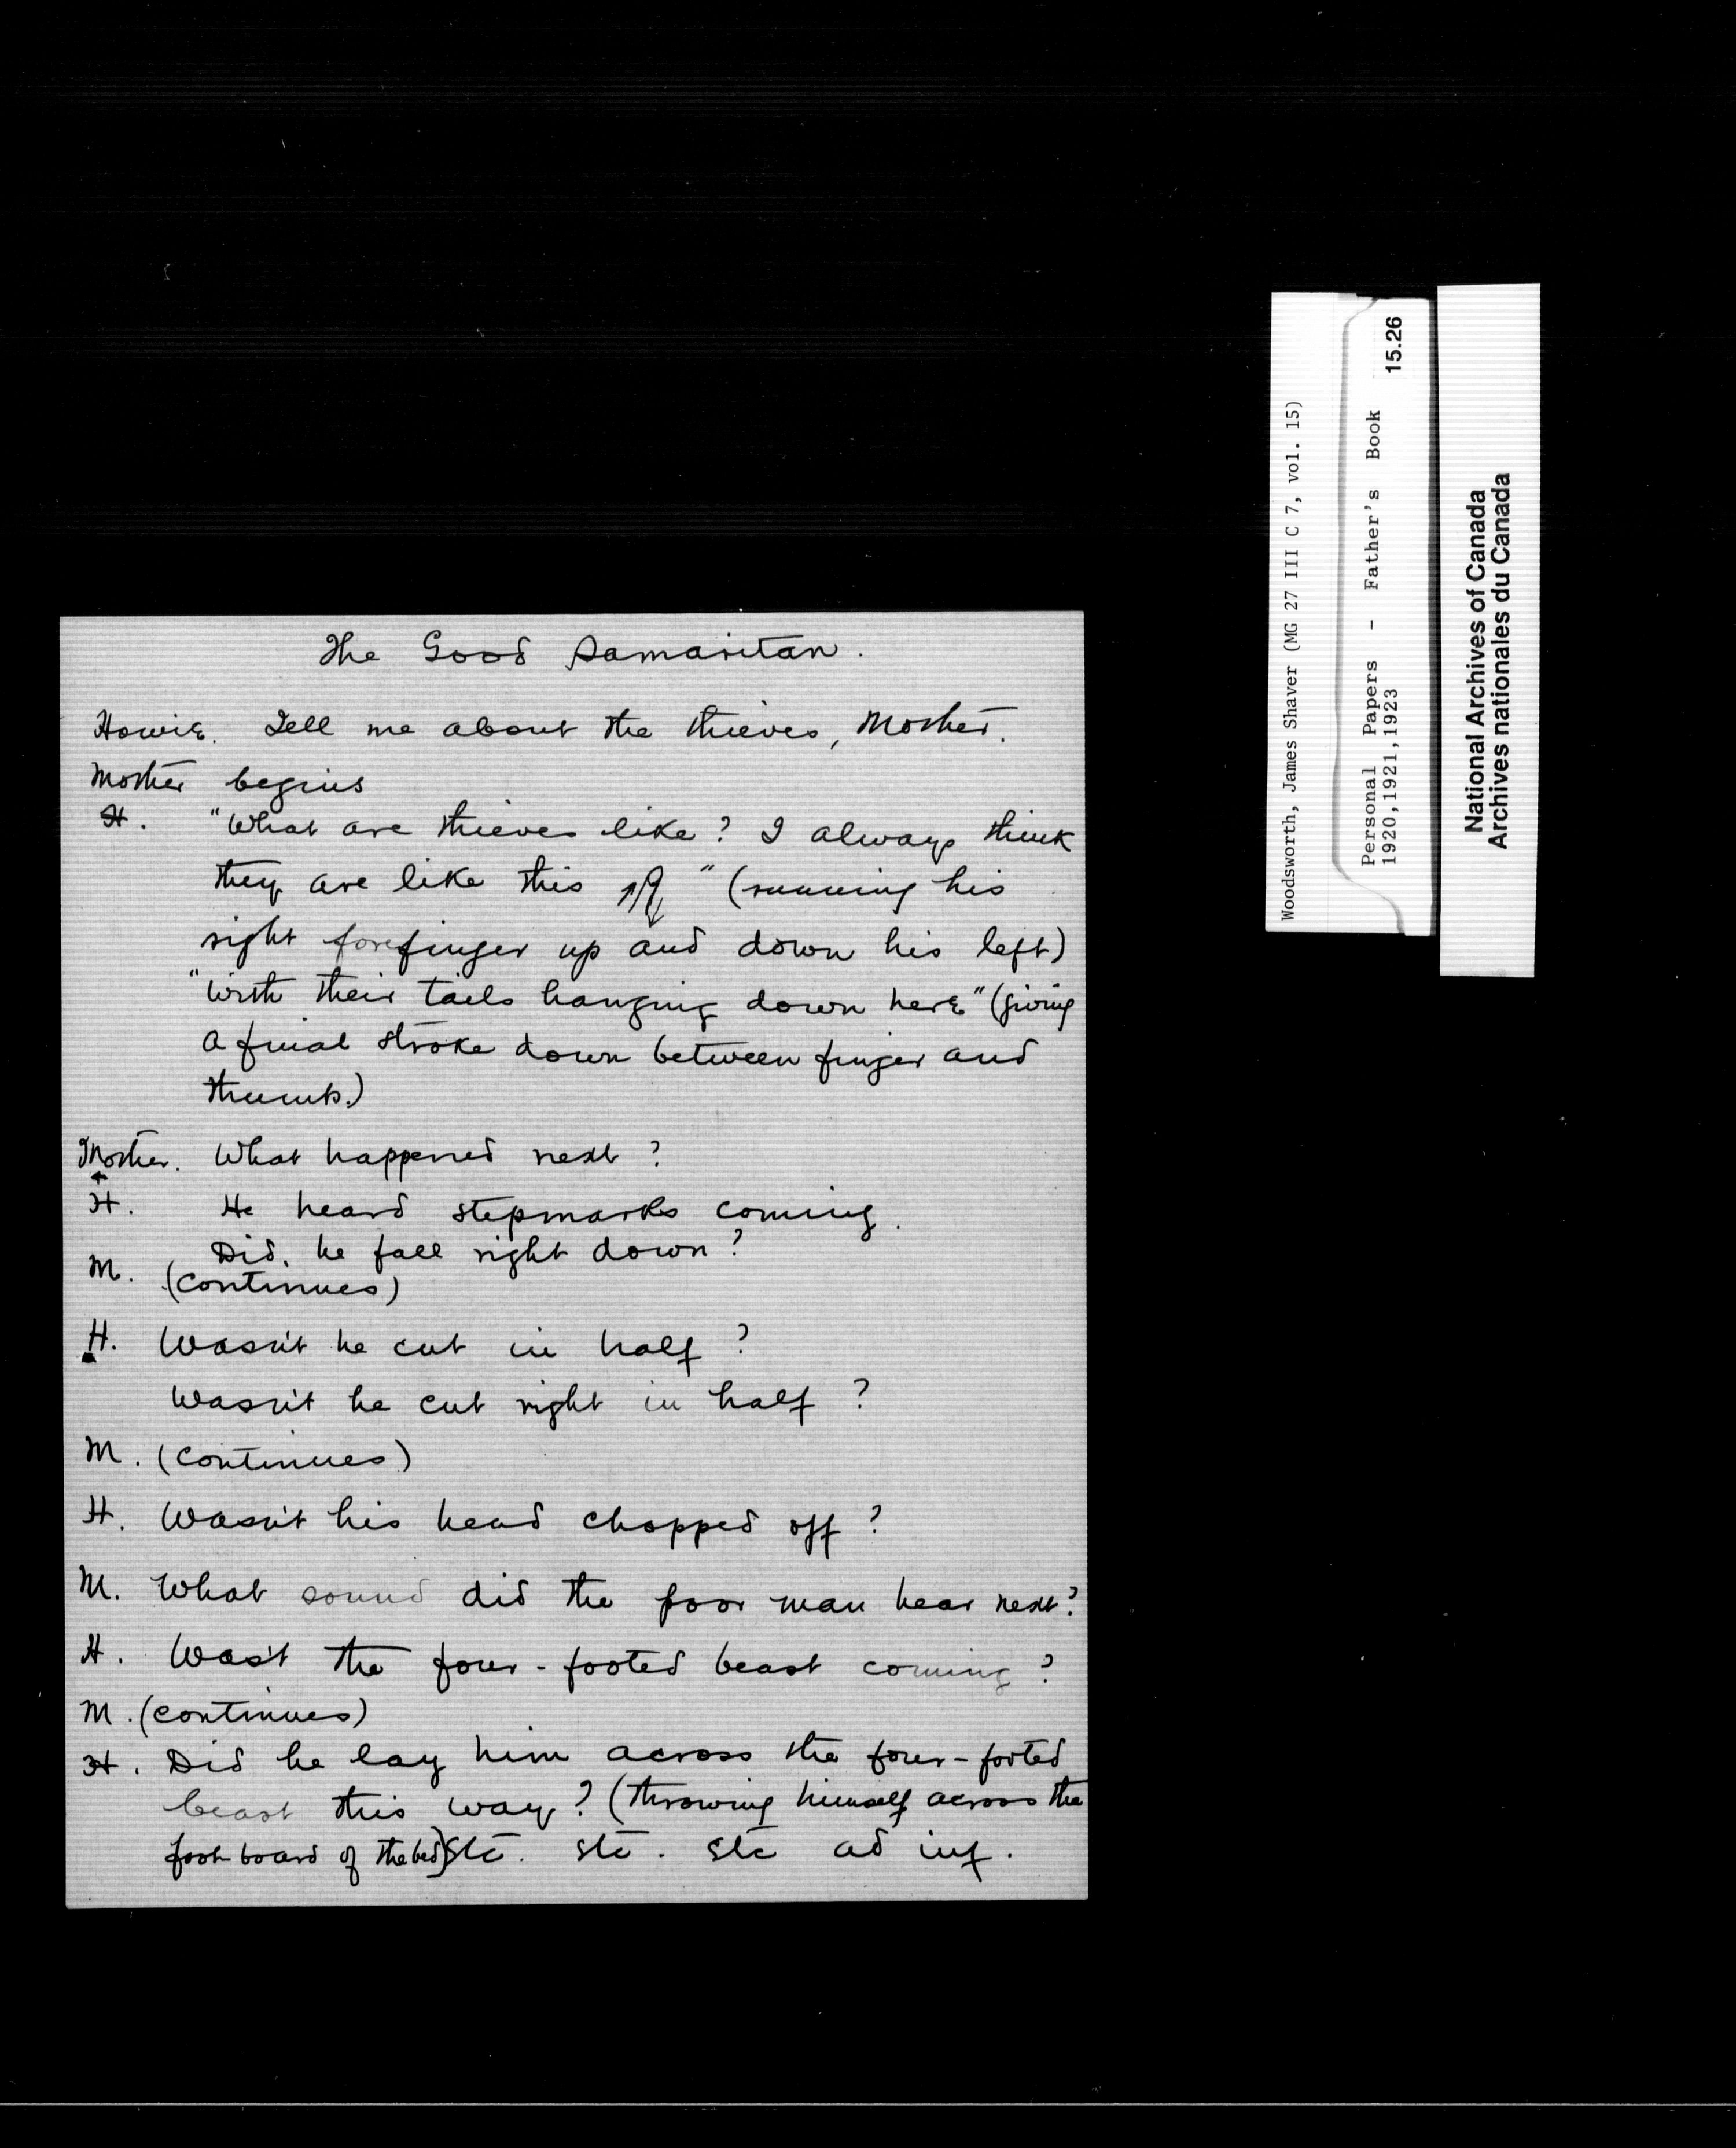 The Good Samaritan.
Howie. Tell me about the thieves, Mother.
Mother begins
H. "What are thieves like? I always think
they are like this " (running his
right forefinger up and down his left)
"With their tails hanging down here" (giving
a final stroke down between finger and
thumb.)
Mother. What happened next?
H. He heard stepmarks coming.
Did he fall right down?
M. (continues)
H. Wasn't he cut in half?
Wasn't he cut right in half?
M. (continues)
H. Wasn't his head chopped off?
M. What sound did the poor man hear next?
H. Was't the four-footed beast coming?
M. (continues)
H. Did he lay him across the four-footed
beast this way? (throwing himself across the
foot board of the bed) etc. etc. etc ad inf.
Woodsworth, James Shaver (MG 27 III C 7, vol. 15)
Personal Papers - Father's Book 15.26
1920,1921,1923
National Archives of Canada
Archives nationales du Canada